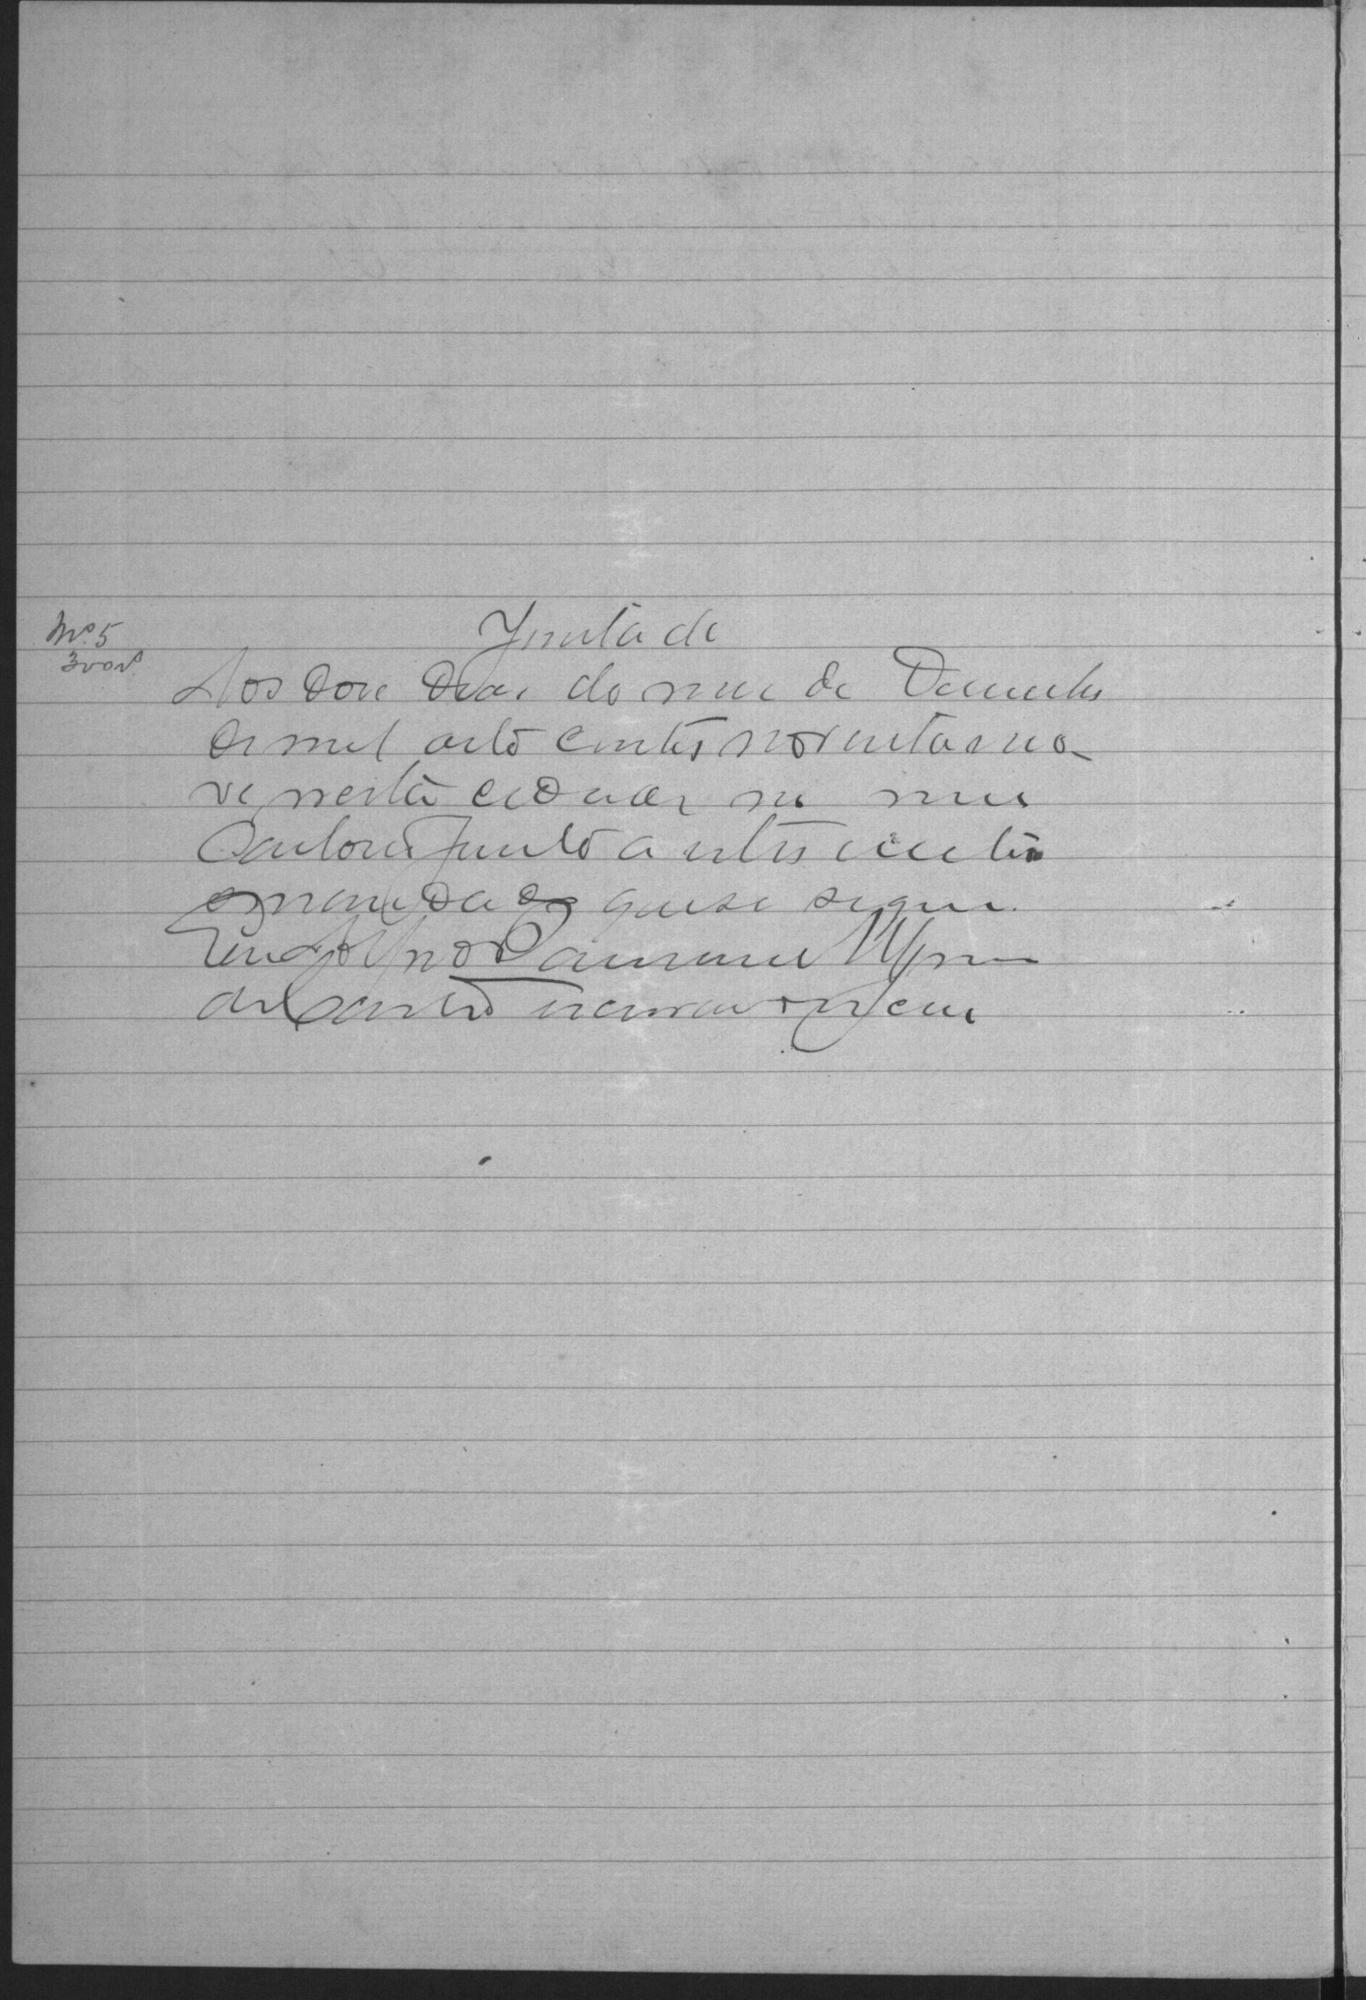 Nº 5
Juntada
Aos doze dias do mez de Dezembro
de mil oito centos noventa e no-
ve nesta cidade em meu
Cartorio junto a estes autos
o mandado que se segue.
Eu
de Castro escrivão o escrevi